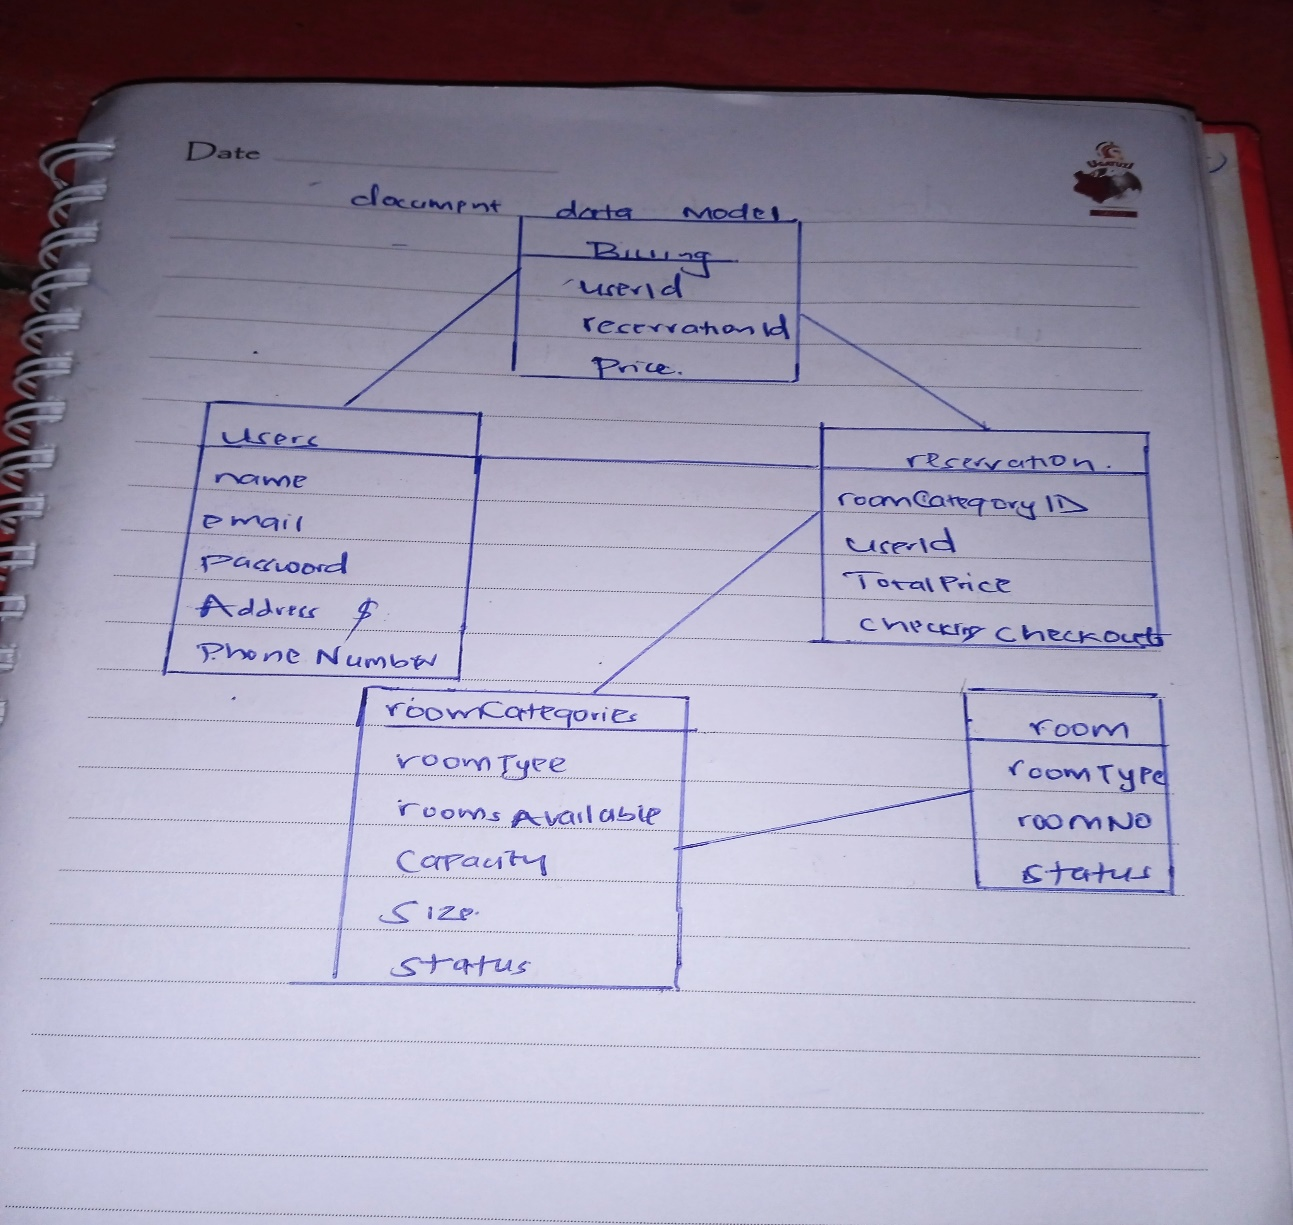 Date
document data Model
Billing
userId
reservationId
Price.
users
name
email
password
Address $
Phone Number
reservation.
roomCategory ID
userId
Total Price
checkin checkout
roomCategories
roomType
rooms Available
Capacity
Size.
Status
room
roomType
roomNO
status